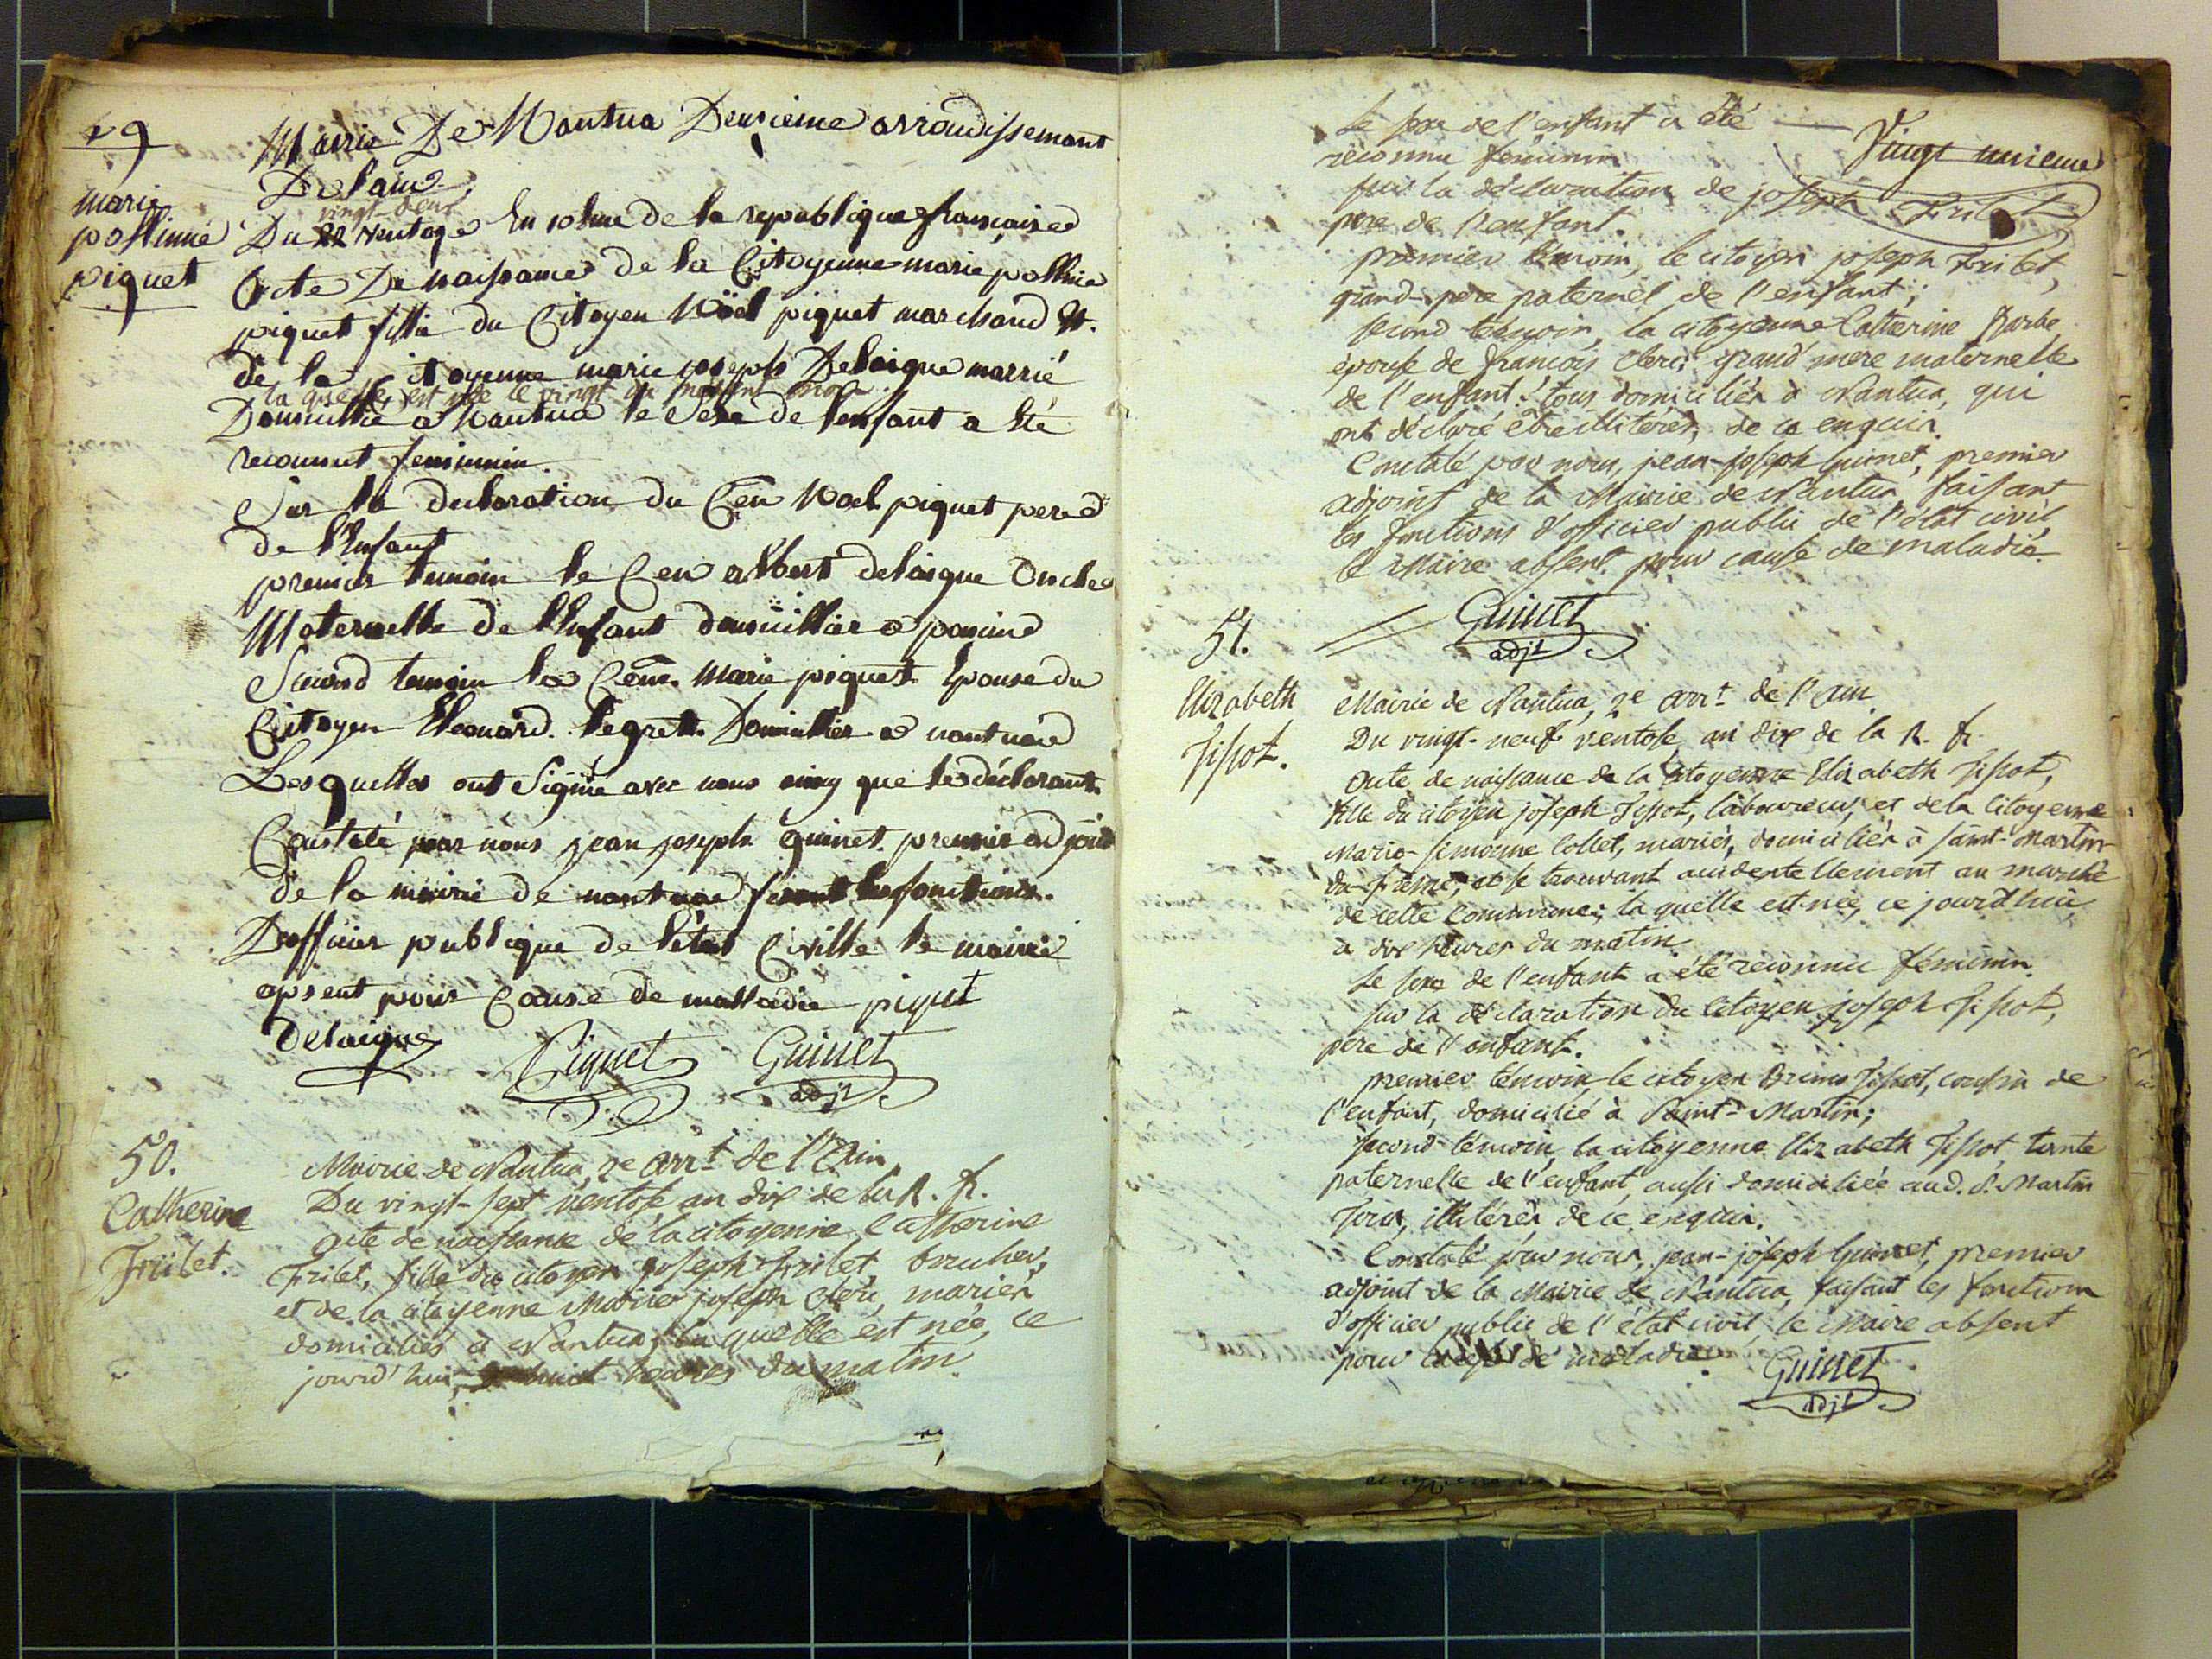 49
marie
pollinne
piquet
Mairie De Nantua Deuxieme arrondissemant
De l'ain
vingt-deux
Du 22 Ventose En 10eme de la republique francaise
Acte De naissance de la Citoyenne marie polline
piquet fille du Citoyen Nöel piquet marchand Et
de la citoyenne marie joseph Delaigue marrié
la quelle, est née le vingt du present mois
Domicillié a Nantua le Sexe de l'enfant a Eté
reconnut feminnin.
Sur la declaration du Cen Noel piquet pere
de l'Enfant
premier temoin le Cen albert delaigue Oncle
Maternelle de l'Enfant domicillier a
Second temoin la Cene Marie piquet Epouse du
Citoyen Eleonard legrett Domicillier a nantua
Lesquelles ont Signié avec nous insy que le déclarant
Constaté par nous jean joseph guinet premier adjoint
de la mairie de nantua fesant les fonctions
D'officier publique de l'état Civille le maire
apsent pour Cause de malladie piqut
delaigue Piquet Guinet
adjt
50.
Catherine
Frilet.
Mairie de Nantua, 2e arrt de l'Ain.
Du vingt-sept ventose an dix de la R. fr.
acte de naissance de la citoyenne Catherine
Frilet, fille du citoyen joseph frilet boucher,
et de la citoyenne Marie joseph Clerc, mariés
domiciliés à Nantua; la quelle est née, ce
jourd'hui, à huit heures du matin.
Vingt unieme
Le sexe de l'enfant a été
reconnu féminin
sur la déclaration de joseph Frilet
pere de l'enfant.
premier témoin, le citoyen joseph Frilet,
grand-pere paternel de l'enfant;
second témoin, la citoyenne Catherine Barbe
épouse de françois Clerc, grand mere maternelle
de l'enfant: tous domiciliés à Nantua, qui
ont déclaré être illiterés, de ce enquis.
Constaté par nous, jean-joseph Guinet, premier
adjoint de la Mairie de Nantua, faisant
les fonctions d'officier public de l'état civil,
le Maire absent pour cause de maladie.
Guinet
adjt
51.
Elizabeth
Tissot.
Mairie de Nantua, 2e arrt de l'Ain.
Du vingt-neuf ventose an dix de la R. fr.
acte de naissance de la citoyenne Elizabeth Tissot,
fille du citoyen joseph Tissot, laboureur, et de la Citoyenne
Marie-simonne Collet, mariés, domiciliés à saint-Martin-
du-fresne, et se trouvant accidentellement au marché
de cette Commune; la quelle est née, ce jourd'hui,
à dix heures du matin.
Le sexe de l'enfant a été reconnu féminin.
sur la déclaration du Citoyen joseph Tissot,
pere de l'enfant.
premier témoin, le citoyen Bruno Tissot, cousin de
l'enfant, domicilié à Saint-Martin;
second témoin, la citoyenne Elizabeth Tissot tante
paternelle de l'enfant, aussi domiciliée aud. St. Martin
Tous, illiterés de ce enquis.
Constaté par nous, jean-joseph Guinet, premier
adjoint de la Mairie de Nantua, faisant les fonctions
d'officier public de l'état civil, le Maire absent
pour cause de maladie.
Guinet
adjt